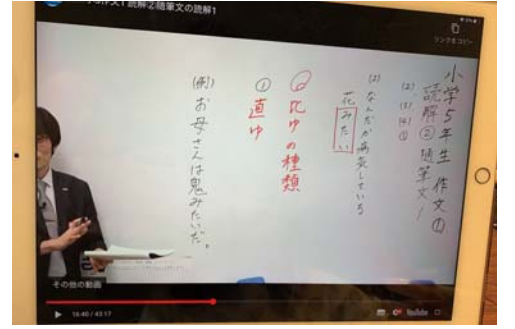 小5作文1 読解②随筆文の読解1
リンクをコピー
小学5年生 作文①
読解② 随筆文1
(2) (3) (4) ①
(2) なんだか病気している
花みたい
◎比ゆの種類
① 直ゆ
(例) お母さんは鬼みたいだ。
その他の動画
16:40 / 43:17
YouTube